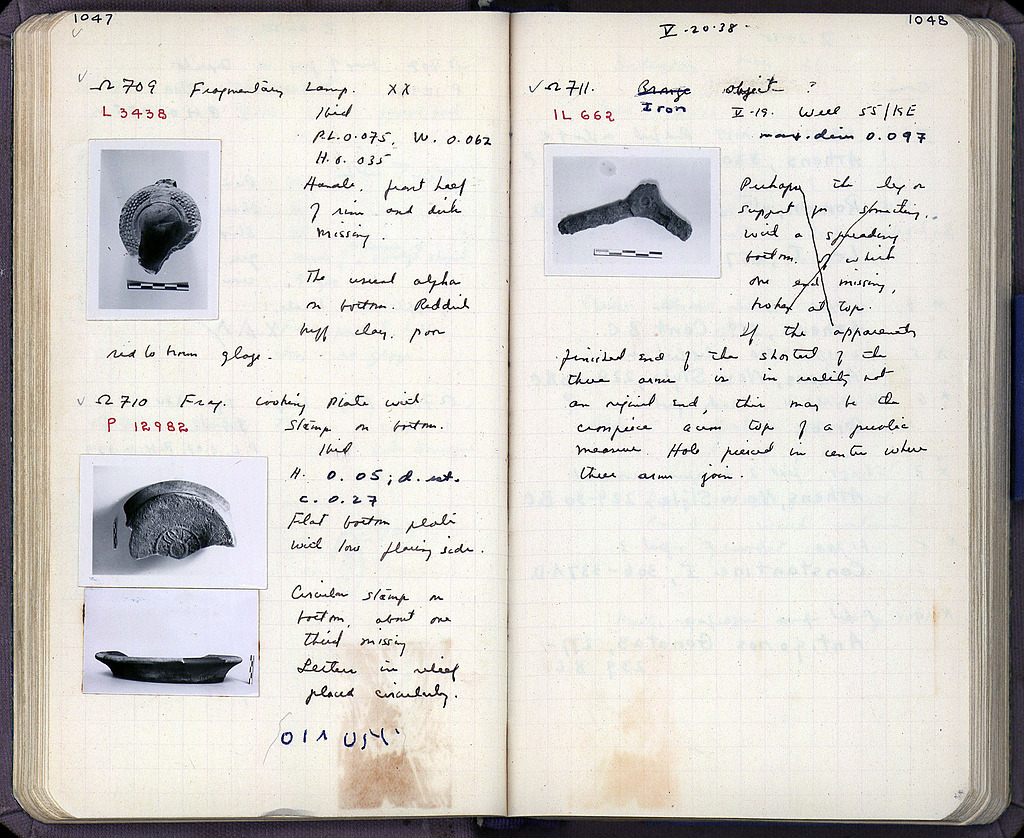 1047
Ω 709 Fragmentary Lamp. XX
L 3438
Ibid
P.L. 0.075, W. 0.062
H. 0.035
Handle, front half
of rim and disk
missing.
The usual alpha
on bottom. Reddish
buff clay, poor
red to brown glaze.
Ω 710 Frag. cooking plate with
P 12982
stamp on bottom.
Ibid
H. 0.05; d. est.
c. 0.27
Flat bottom plate
with low flaring side.
Circular stamp on
bottom, about one
third missing
Letters in relief
placed circularly.
1048
V-20-38
Ω 711. Bronze object ?
Iron
IL 662
V-19. Well 55/ΚΕ
max. dim 0.097
Perhaps the leg or
support for something,
with a spreading
bottom, of which
one end missing,
broken at top.
If the apparently
finished end of the shortest of the
three arms is in reality not
an original end, this may be the
crosspiece across top of a public
measure. Hole pierced in center where
three arms join.